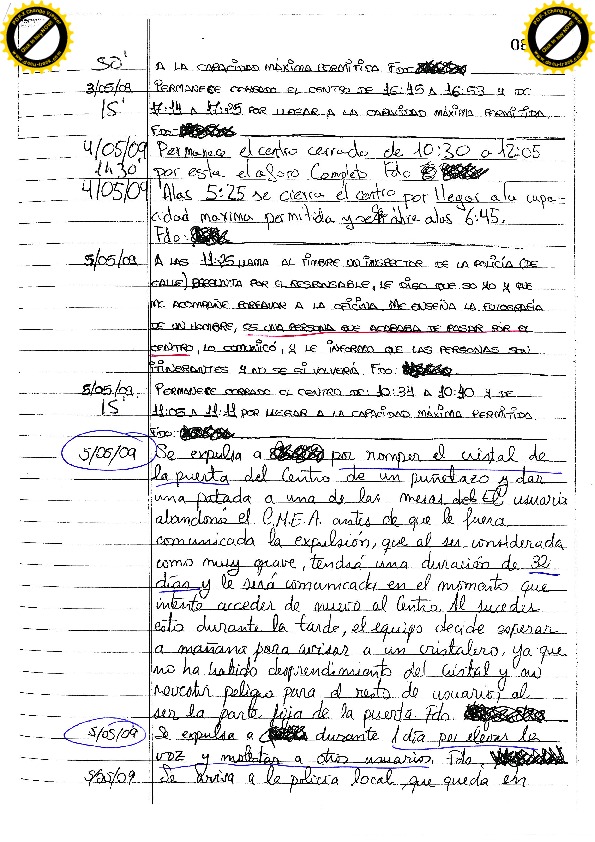 08
50'
A LA CAPACIDAD MÁXIMA PERMITIDA FDO:
3/05/09 PERMANECE CERRADO EL CENTRO DE 16:45 A 16:53 Y DE
15' 17:14 A 17:25 POR LLEGAR A LA CAPACIDAD MÁXIMA PERMITIDA
FDO:
4/05/09 Permanece el centro cerrado de 10:30 a 12:05
1h30' por estar el aforo Completo. Fdo
4/05/09 Alas 5:25 se cierra el centro por llegar a la capa-
cidad maxima permitida y se abre alas 6:45.
Fdo:
5/05/09 A LAS 11:25 LLAMA AL TIMBRE UN INSPECTOR DE LA POLICÍA (DE
CALLE) PREGUNTA POR EL RESPONSABLE, LE DIGO QUE SO YO Y QUE
ME ACOMPAÑE A LA OFICINA. ME ENSEÑA LA FOTOGRAFÍA
DE UN HOMBRE, ES UNA PERSONA QUE ACABABA DE PASAR POR EL
CENTRO, LO COMUNICÓ, Y LE INFORMO QUE LAS PERSONAS SON
ITINERANTES Y NO SE SI VOLVERÁ. FDO:
5/05/09 PERMANECE CERRADO EL CENTRO DE: 10:34 A 10:40 Y DE
15' 11:05 A 11:11 POR LLEGAR A LA CAPACIDAD MÁXIMA PERMITIDA.
FDO:
5/05/09 Se expulsa a por romper el cristal de
la puerta del Centro de un puñetazo y dar
una patada a una de las mesas del El usuario
abandonó el C.M.E.A. antes de que le fuera
comunicada la expulsión, que al ser considerada
como muy grave, tendrá una duración de 32
días y le será comunicada en el momento que
intente acceder de nuevo al Centro. Al suceder
esto durante la tarde, el equipo decide esperar
a mañana para avisar a un cristalero, ya que
no ha habido desprendimiento del cristal y no
revestir peligro para el resto de usuarios, al
ser la parte fija de la puerta. Fdo.
5/05/09 Se expulsa a durante 1 día por elevar la
voz y molestar a otros usuarios. Fdo.
5/05/09 Se avisa a la policía local, que queda en